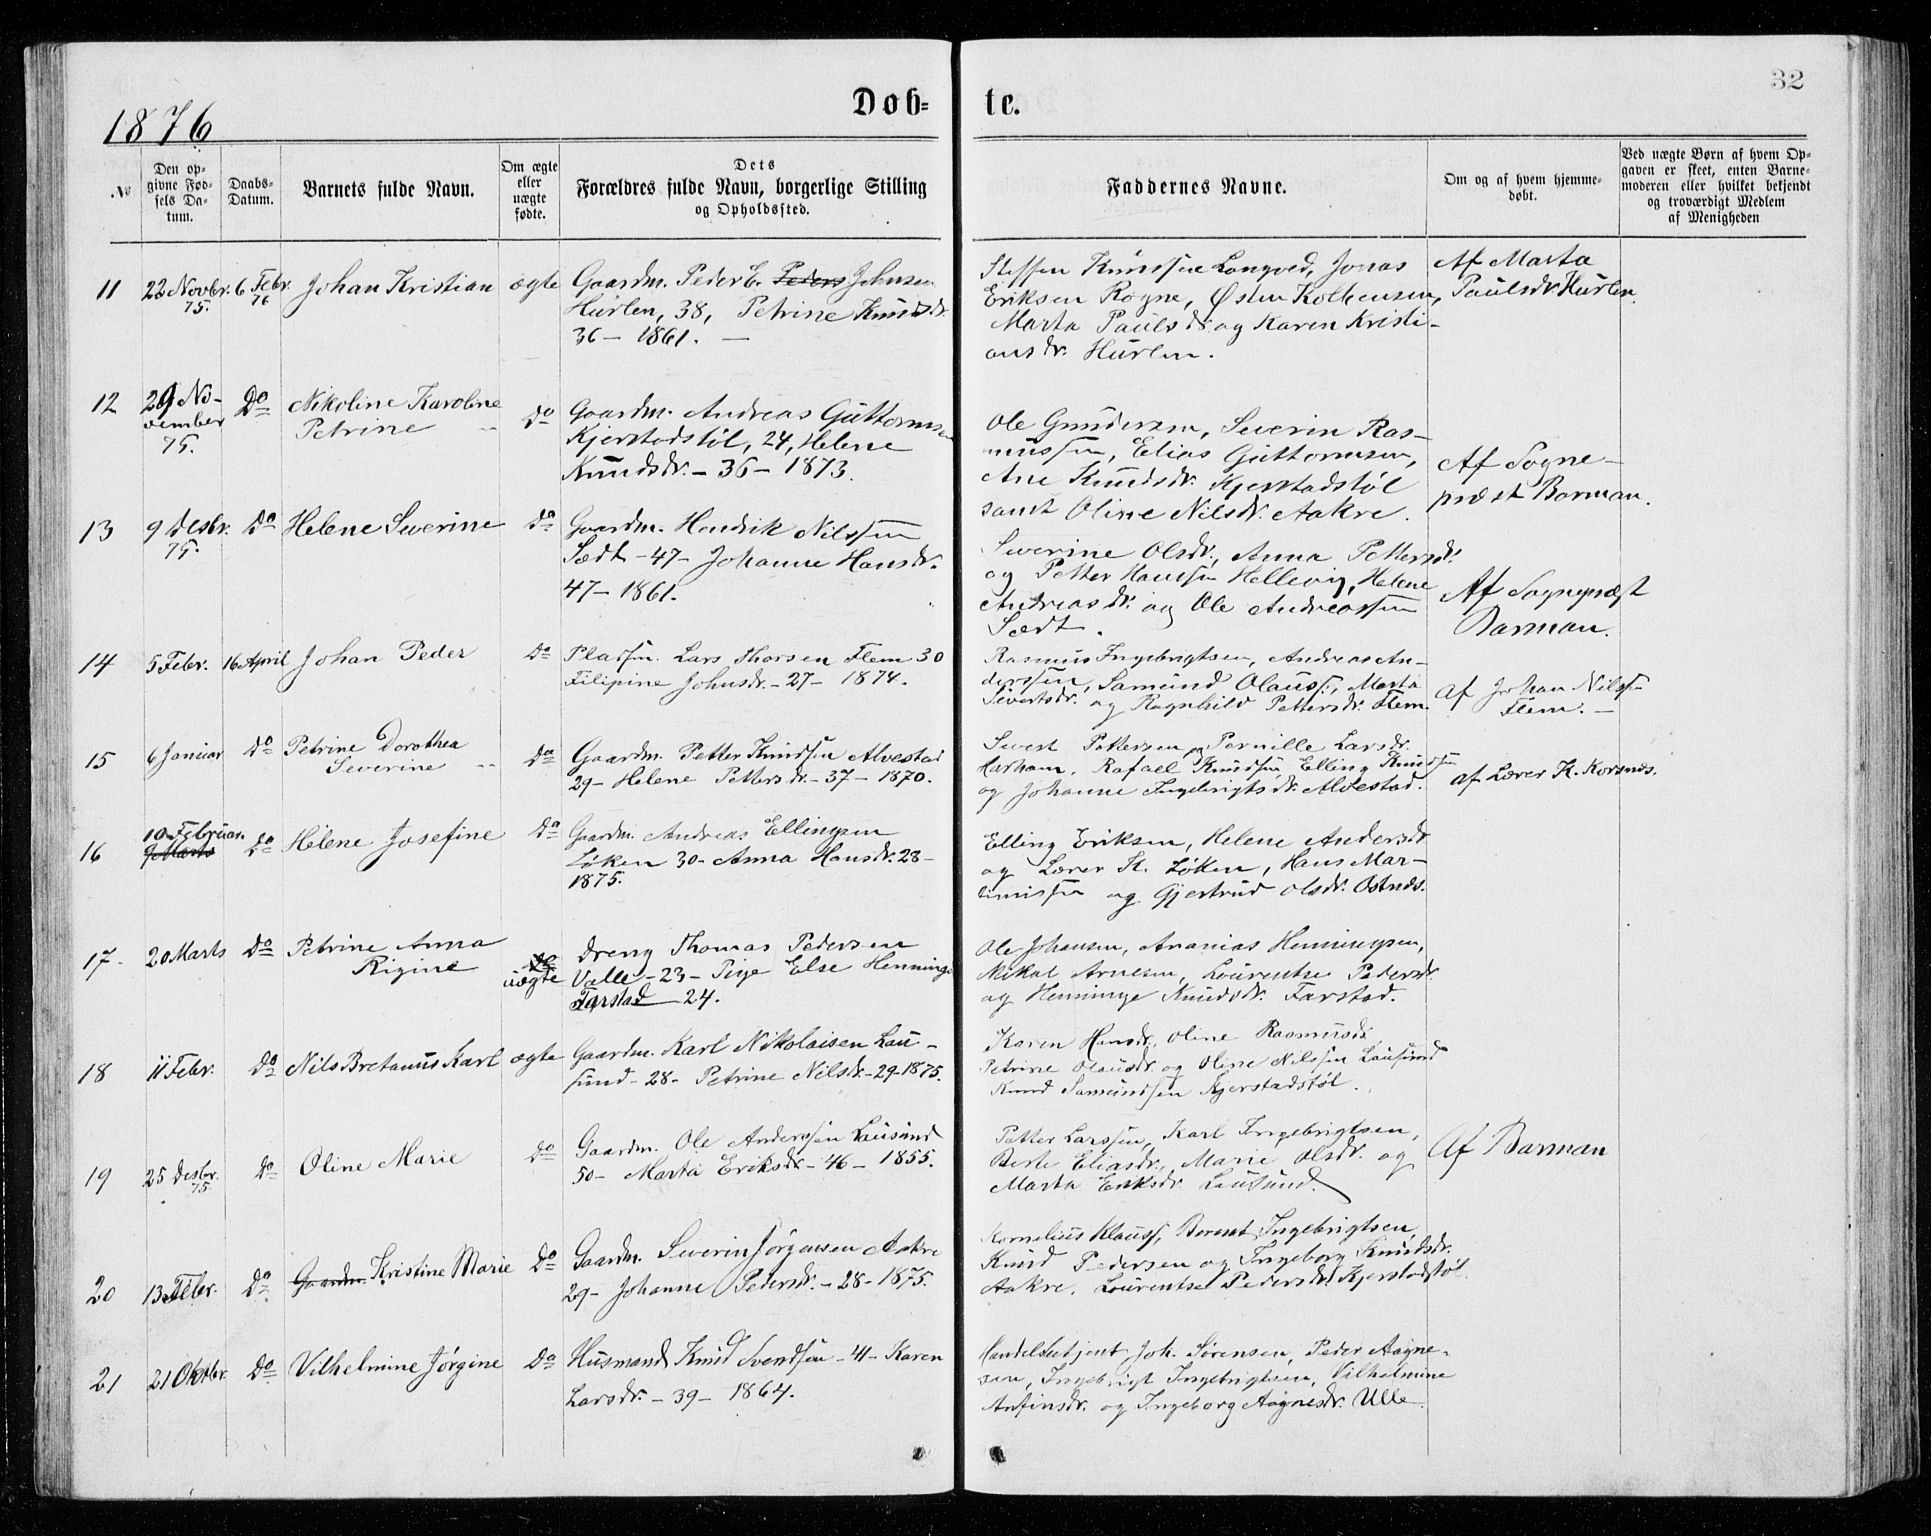 1876
Døb=
te.
32
№
Den op=
givne Fød=
sels Da=
tum.
Daabs=
Datum.
Barnets fulde Navn.
Om ægte
eller
uægte
fødte.
Dets
Forældres fulde Navn, borgerlige Stilling
og Opholdssted.
Faddernes Navne.
Om og af hvem hjemme=
døbt.
Ved uægte Børn af hvem Op=
gaven er skeet, enten Barne=
moderen eller hvilket bekjendt
og troværdigt Medlem
af Menigheden
11
22 Novbr.
75.
6 Febr.
76
Johan Kristian
ægte
Gaardm. Peder E. Peders Johnsen
Hurlen, 38, Petrine Knudsdr.
36 - 1861. -
Steffen Knudsen Longved, Jonas
Eriksen Rogne, Østen Kolbensen,
Marta Paulsdr. og Karen Kristi-
ansdr. Hurlen.
Af Marta
Paulsdr. Hurlen.
12
29 No-
vember
75.
Do
Nikoline Karoline
Petrine
Do
Gaardm. Andreas Guttormsen
Kjerstadstøl, 24, Helene
Knudsdr. - 36 - 1873.
Ole Gundersen, Severin Ras-
mussen, Elias Guttormsen,
Ane Knudsdr. Kjerstadstøl
samt Oline Nilsdr. Aakre.
Af Sogne-
præst Barman.
13
9 Desbr.
75.
Do
Helene Severine
Do
Gaardm. Hendrik Nilssen
Sædt - 47 - Johanne Hansdr.
47 - 1861.
Severine Olsdr., Anna Pettersdr.
og Petter Hanssen Hellevig, Helene
Andreasdr. og Ole Andreassen
Sædt.
Af Sognepræst
Barman.
14
5 Febr.
16 April
Johan Peder
Do
Pladsm. Lars Thorsen Flem 30
Filipine Johnsdr. - 27 - 1874.
Rasmus Ingebrigtsen, Andreas An-
derssen, Samund Olauss., Marta
Sivertsdr. og Ragnhild Pettersdr. Flem.
af Johan Nilssen
Flem. -
15
6 Januar
Do
Petrine Dorothea
Severine
Do
Gaardm. Petter Knudsen Alvestad
29 - Helene Pettersdr. - 37 - 1870.
Sivert Pettersen, Pernille Larsdr.
Harham, Rafael Knudsen, Elling Knudsen
og Johanne Ingebrigtsdr. Alvestad.
af Lærer K. Korsnes.
16
10 Februar.
9 Marts
Do
Helene Josefine
Do
Gaardm. Andreas Ellingsen
Løken 30 - Anna Hansdr. 28 -
1875.
Elling Eriksen, Helene Andersdr.
og Lærer K. Løken, Hans Mar-
tinussen og Gjertrud Olsdr. Ostnes.
17
20 Marts
Do
Petrine Anna
Rigine
Do
uægte
Dreng Thomas Pedersen
Valle - 23 - Pige Else Hennings
Farstad 24.
Ole Johansen, Ananias Henningsen,
Mikal Arnesen, Lourentse Pedersdr.
og Henninge Knudsdr. Farstad.
18
11 Febr.
Do
Nils Bretanus Karl
ægte
Gaardm. Karl Nikolaisen Lau-
sund - 28 - Petrine Nilsdr. - 29 - 1875.
Karen Hansdr., Oline Rasmusdr.
Petrine Olausdr. og Oline Nilssen Lausund
Knud Samundsen Kjerstadstøl.
19
25 Desbr.
75.
Do
Oline Marie
Do
Gaardm. Ole Anderssen Lausund
50 - Marta Eriksdr. - 46 - 1855.
Petter Larssen, Karl Ingebrigtsen,
Berte Eliasdr., Marie Olsdr. og
Marta Eriksdr. Lausund.
Af Barman
20
13 Febr.
Do
Gaardm. Kristine Marie
Do
Gaardm. Severin Jørgensen Aakre
29 - Johanne Pedersdr. - 28 - 1875.
Kornelius Klauss, Berent Ingebrigtsen,
Knud Pedersen og Ingeborg Knudsdr.
Aakre, Lourentse Pedersdr. Kjerstadstøl.
21
21 Oktbr.
Do
Vilhelmine Jørgine
Do
Husmand Knud Svendsen - 41 - Karen
Larsdr. - 39 - 1864.
Handelsbetjent Joh. Sørensen, Peder Aagne-
sen, Ingebrigt Ingebrigtsen, Vilhelmine
Anfinsdr. og Ingeborg Aagnesdr. Ulle.